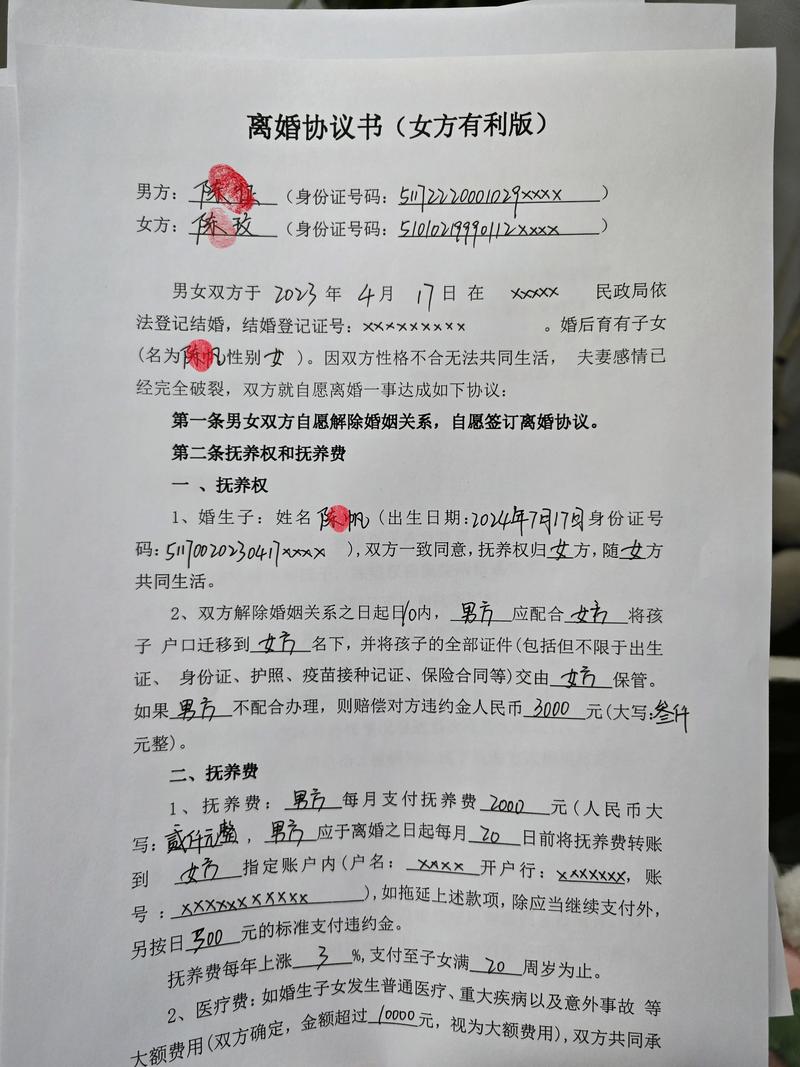 离婚协议书（女方有利版）
男方：陈（身份证号码：51172220001029xxxx）
女方：陈玫（身份证号码：51010219990112xxxx）
男女双方于 2023 年 4 月 17 日 在 xxxxx 民政局依
法登记结婚，结婚登记证号：xxxxxxxxx 。婚后育有子女
(名为陈帆性别女 )。因双方性格不合无法共同生活， 夫妻感情已
经完全破裂，双方就自愿离婚一事达成如下协议：
第一条男女双方自愿解除婚姻关系，自愿签订离婚协议。
第二条抚养权和抚养费
一 、抚养权
1、婚生子：姓名 陈帆 (出生日期：2024年7月17日身份证号
码：51170020230417xxxx )，双方一致同意，抚养权归女方，随女方
共同生活。
2、双方解除婚姻关系之日起日10内， 男方 应配合 女方 将孩
子 户口迁移到 女方 名下，并将孩子的全部证件(包括但不限于出生
证、 身份证、护照、疫苗接种记证、保险合同等)交由 女方 保管。
如果 男方 不配合办理，则赔偿对方违约金人民币 3000 元(大写：叁仟
元整)。
二、抚养费
1、抚养费： 男方 每月支付抚养费 2000 元(人民币大
写：贰仟元整 ， 男方 应于离婚之日起每月 20 日前将抚养费转账
到 女方 指定账户内(户名： xxxx 开户行：xxxxxxx，账
号 ：xxxxxxxxxxxx )，如拖延上述款项，除应当继续支付外，
另按日 300 元的标准支付违约金。
抚养费每年上涨 3 %,支付至子女满 20 周岁为止。
2、医疗费：如婚生子女发生普通医疗、重大疾病以及意外事故 等
大额费用(双方确定，金额超过 10000 元，视为大额费用)，双方共同承